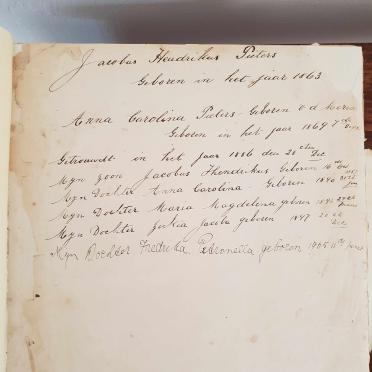 Jacobus Hendrikus Pieters
Geboren in het jaar 1863
Anna Carolina Pieters - Geboren v d
Geboren in het jaar 1869 7 de
Getrouwdt in het jaar 1886 den 28 sten Dec
Myn zoon Jacobus Hendrikus Geboren 16 de
Myn Dochter Anna Carolina - Geboren 1890
Myn Dochter Maria Magdelena geboren
Myn Dochter Jacoba geboren 1897 20 ste Dec
Myn Dochter Fredrika Petronella geboren 1905 11 de